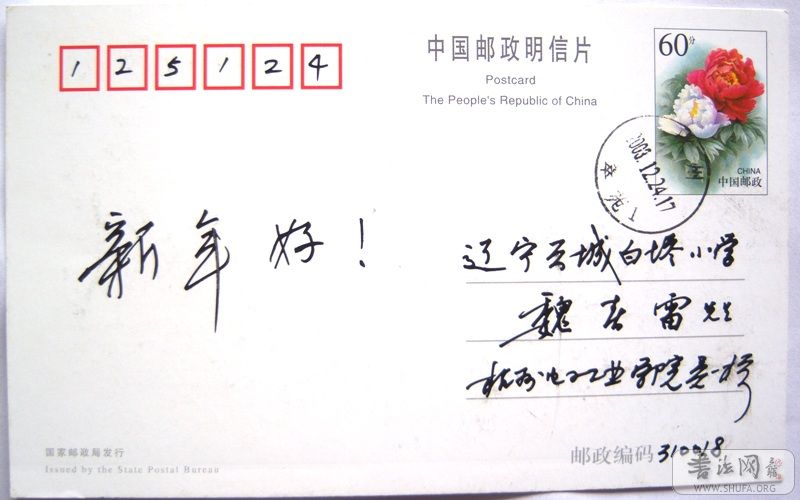 125124
中国邮政明信片
Postcard
The People's Republic of China
60分
CHINA
中国邮政
2003.12.24.17
新年好！
辽宁兴城白塔小学
魏春雷先生
杭州电子工业学院
国家邮政局发行
Issued by the State Postal Bureau
邮政编码 310018
书法网
WWW.SHUFA.ORG